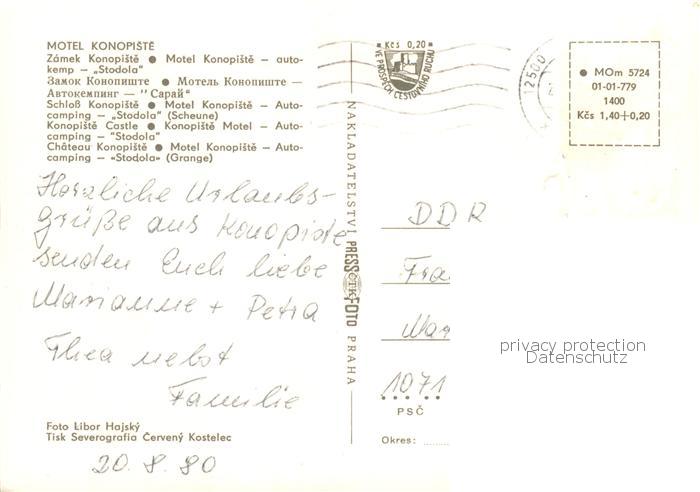 MOTEL KONOPIŠTĚ
Zámek Konopiště ● Motel Konopiště – auto-
kemp – „Stodola"
Замок Конопиште ● Мотель Конопиште –
Автокемпинг – "Сарай"
Schloß Konopiště ● Motel Konopiště – Auto-
camping – „Stodola" (Scheune)
Konopiště Castle ● Konopiště Motel – Auto-
camping – "Stodola"
Château Konopiště ● Motel Konopiště – Auto-
camping – «Stodola» (Grange)
Herzliche Urlaubs-
grüße aus Konopiste
senden Euch liebe
Marianne + Petra
Thea nebst
Familie
Foto Libor Hajský
Tisk Severografia Červený Kostelec
20. 8. 80
NAKLADATELSTVÍ PRESSFOTO PRAHA
ČTK
Kčs 0,20
VE PROSPĚCH CESTOVNÍHO RUCHU
2500
● MOm 5724
01-01-779
1400
Kčs 1,40+0,20
DDR
Fra
Mar
1071
PSČ
Okres: ........
privacy protection
Datenschutz